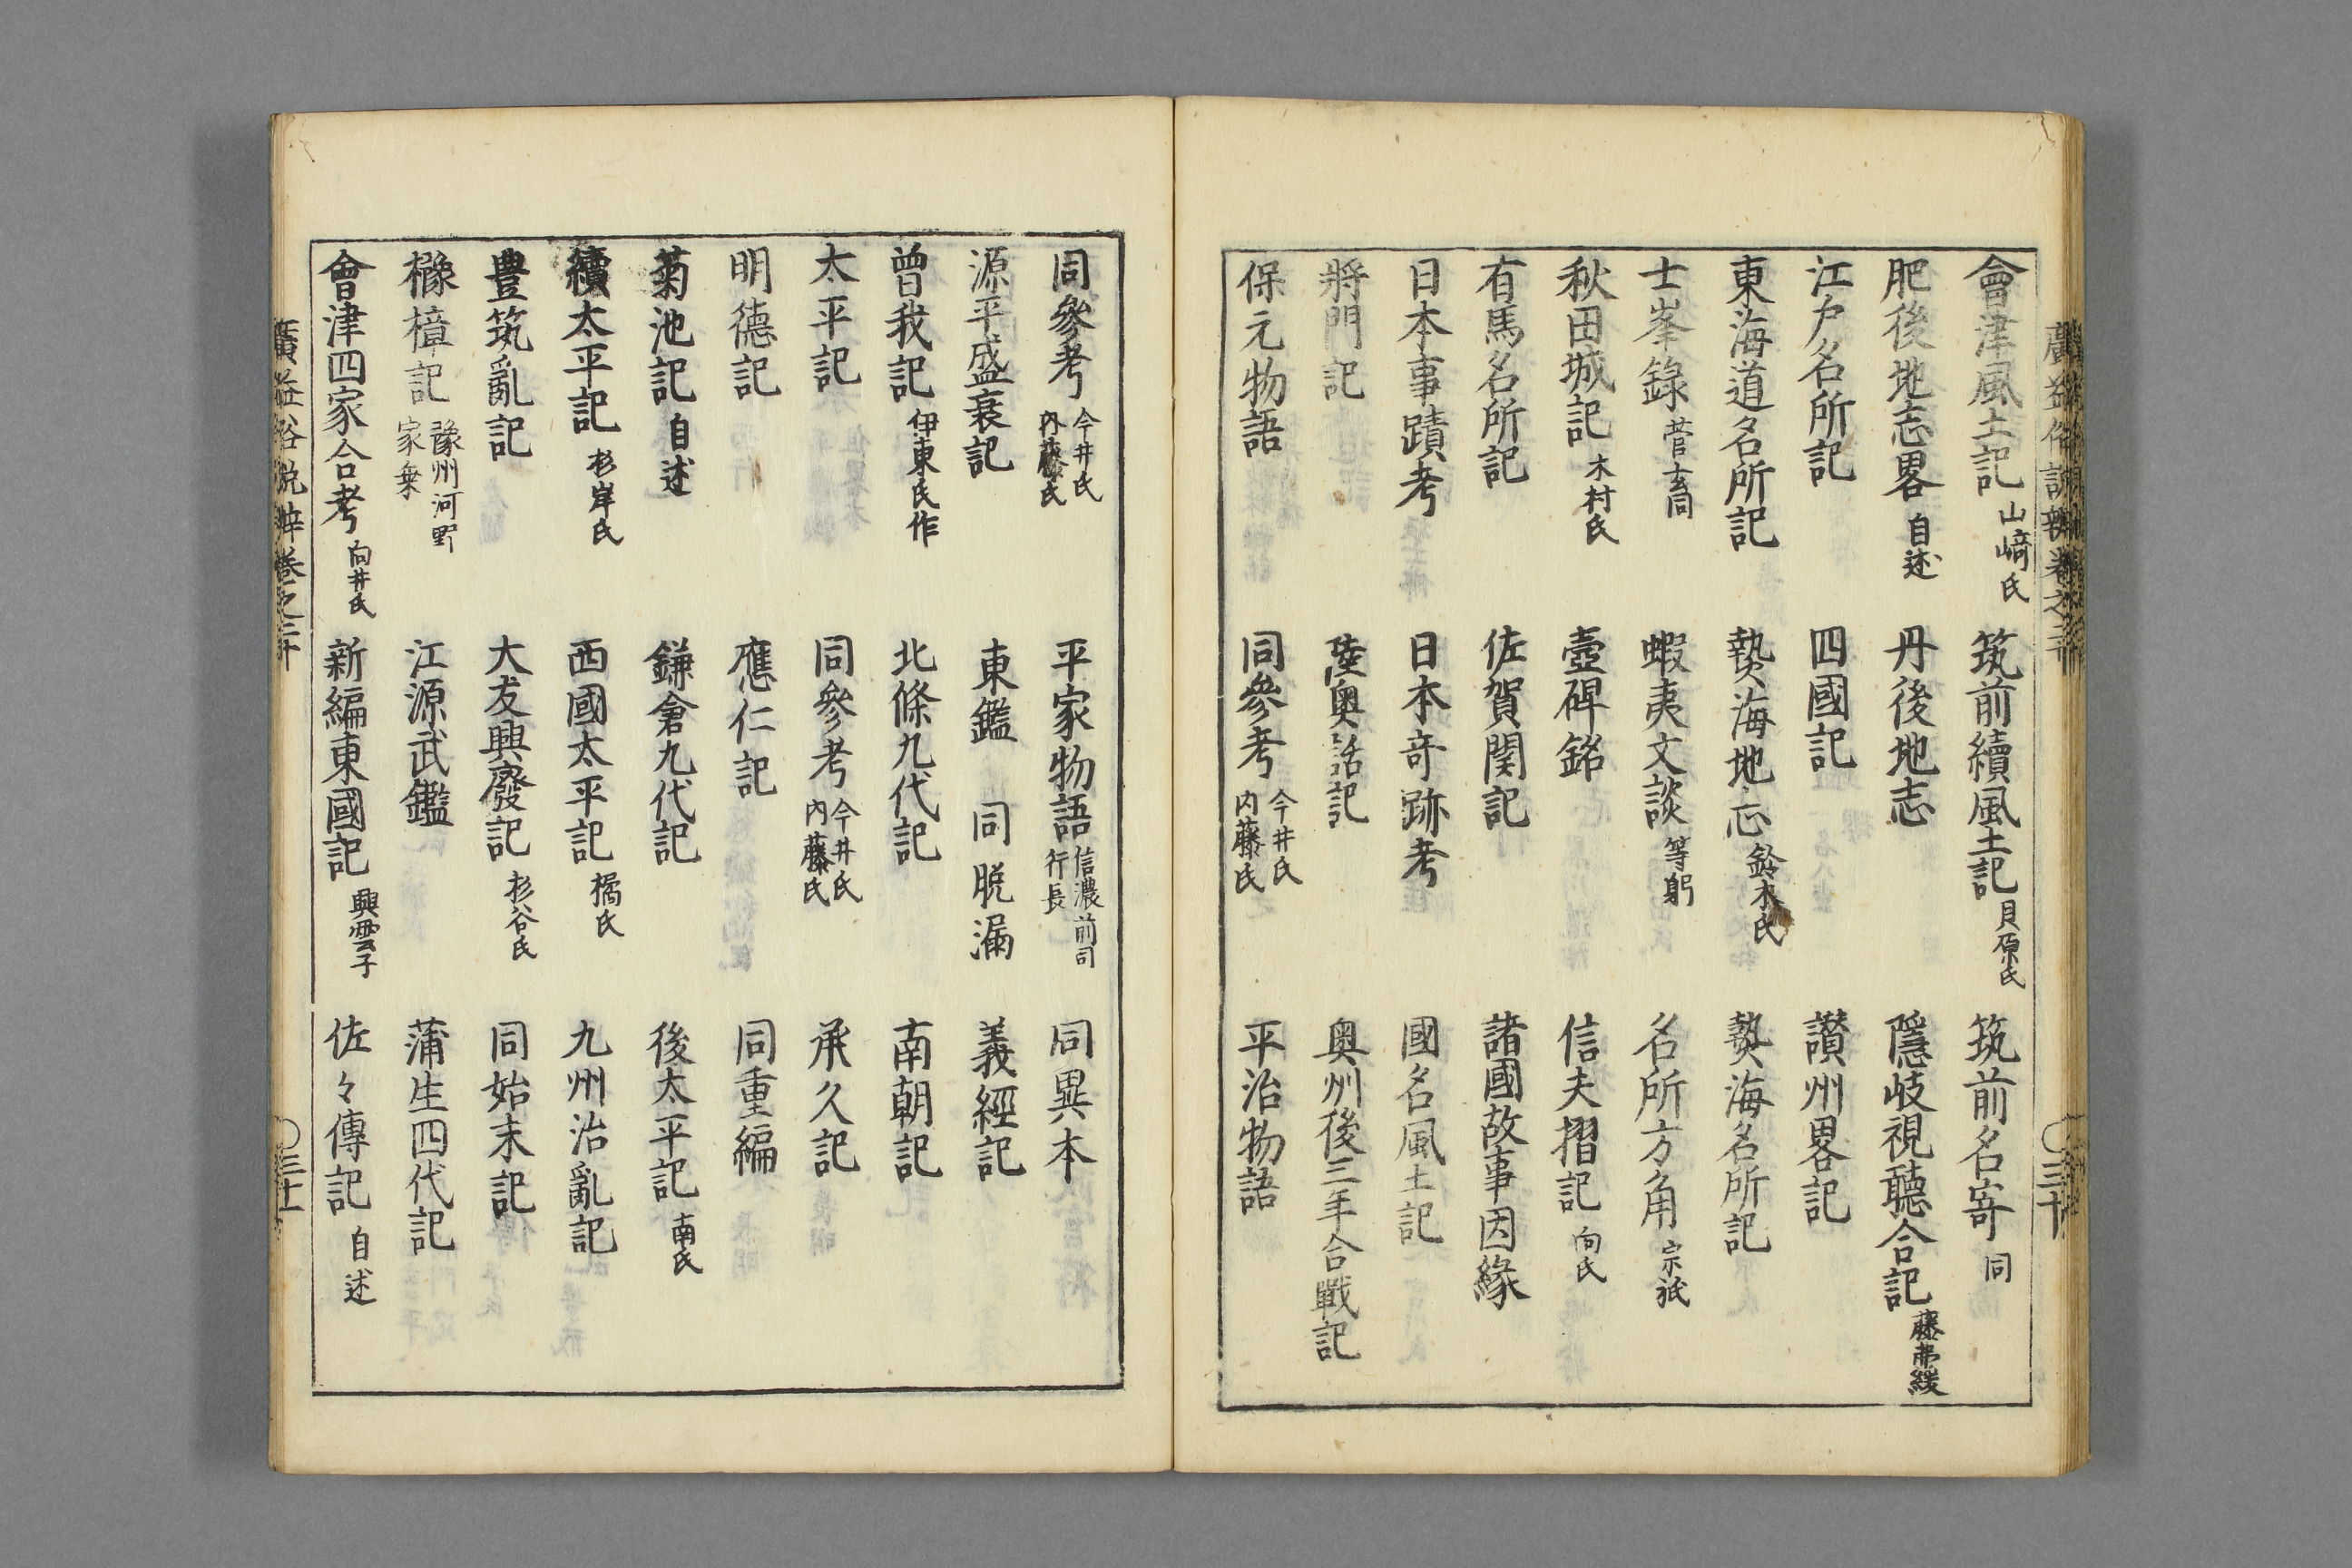 會津風土記 山﨑氏 筑前續風土記 貝原氏 筑前名寄 同
肥後地志畧 自述 丹後地志 隱岐視聽合記 藤弗緩
江戸名所記 四國記 讃州畧記
東海道名所記 熱海地志 鈴木氏 熱海名所記
士峯錄 菅玄同 蝦夷文談 等躬 名所方角 宗祇
秋田城記 木村氏 壺碑銘 信夫摺記 向氏
有馬名所記 佐賀関記 諸國故事因緣
日本事蹟考 日本竒跡考 國名風土記
將門記 陸奧話記 奥州後三年合戰記
保元物語 同參考 今井氏 内藤氏 平治物語
同參考 今井氏 内藤氏 平家物語 信濃前司 行長 同異本
源平盛衰記 東鑑 同脱漏 義經記
曽我記 伊東氏作 北條九代記 南朝記
太平記 同參考 今井氏 内藤氏 承久記
明德記 應仁記 同重編
菊池記 自述 鎌倉九代記 後太平記 南氏
續太平記 杉岸氏 西國太平記 橘氏 九州治亂記
豊筑亂記 大友興廢記 杉谷氏 同始末記
櫲樟記 豫州河野 家乗 江源武鑑 蒲生四代記
會津四家合考 向井氏 新編東國記 興雲子 佐々傳記 自述
廣益俗説辨卷之二十 〇三十一